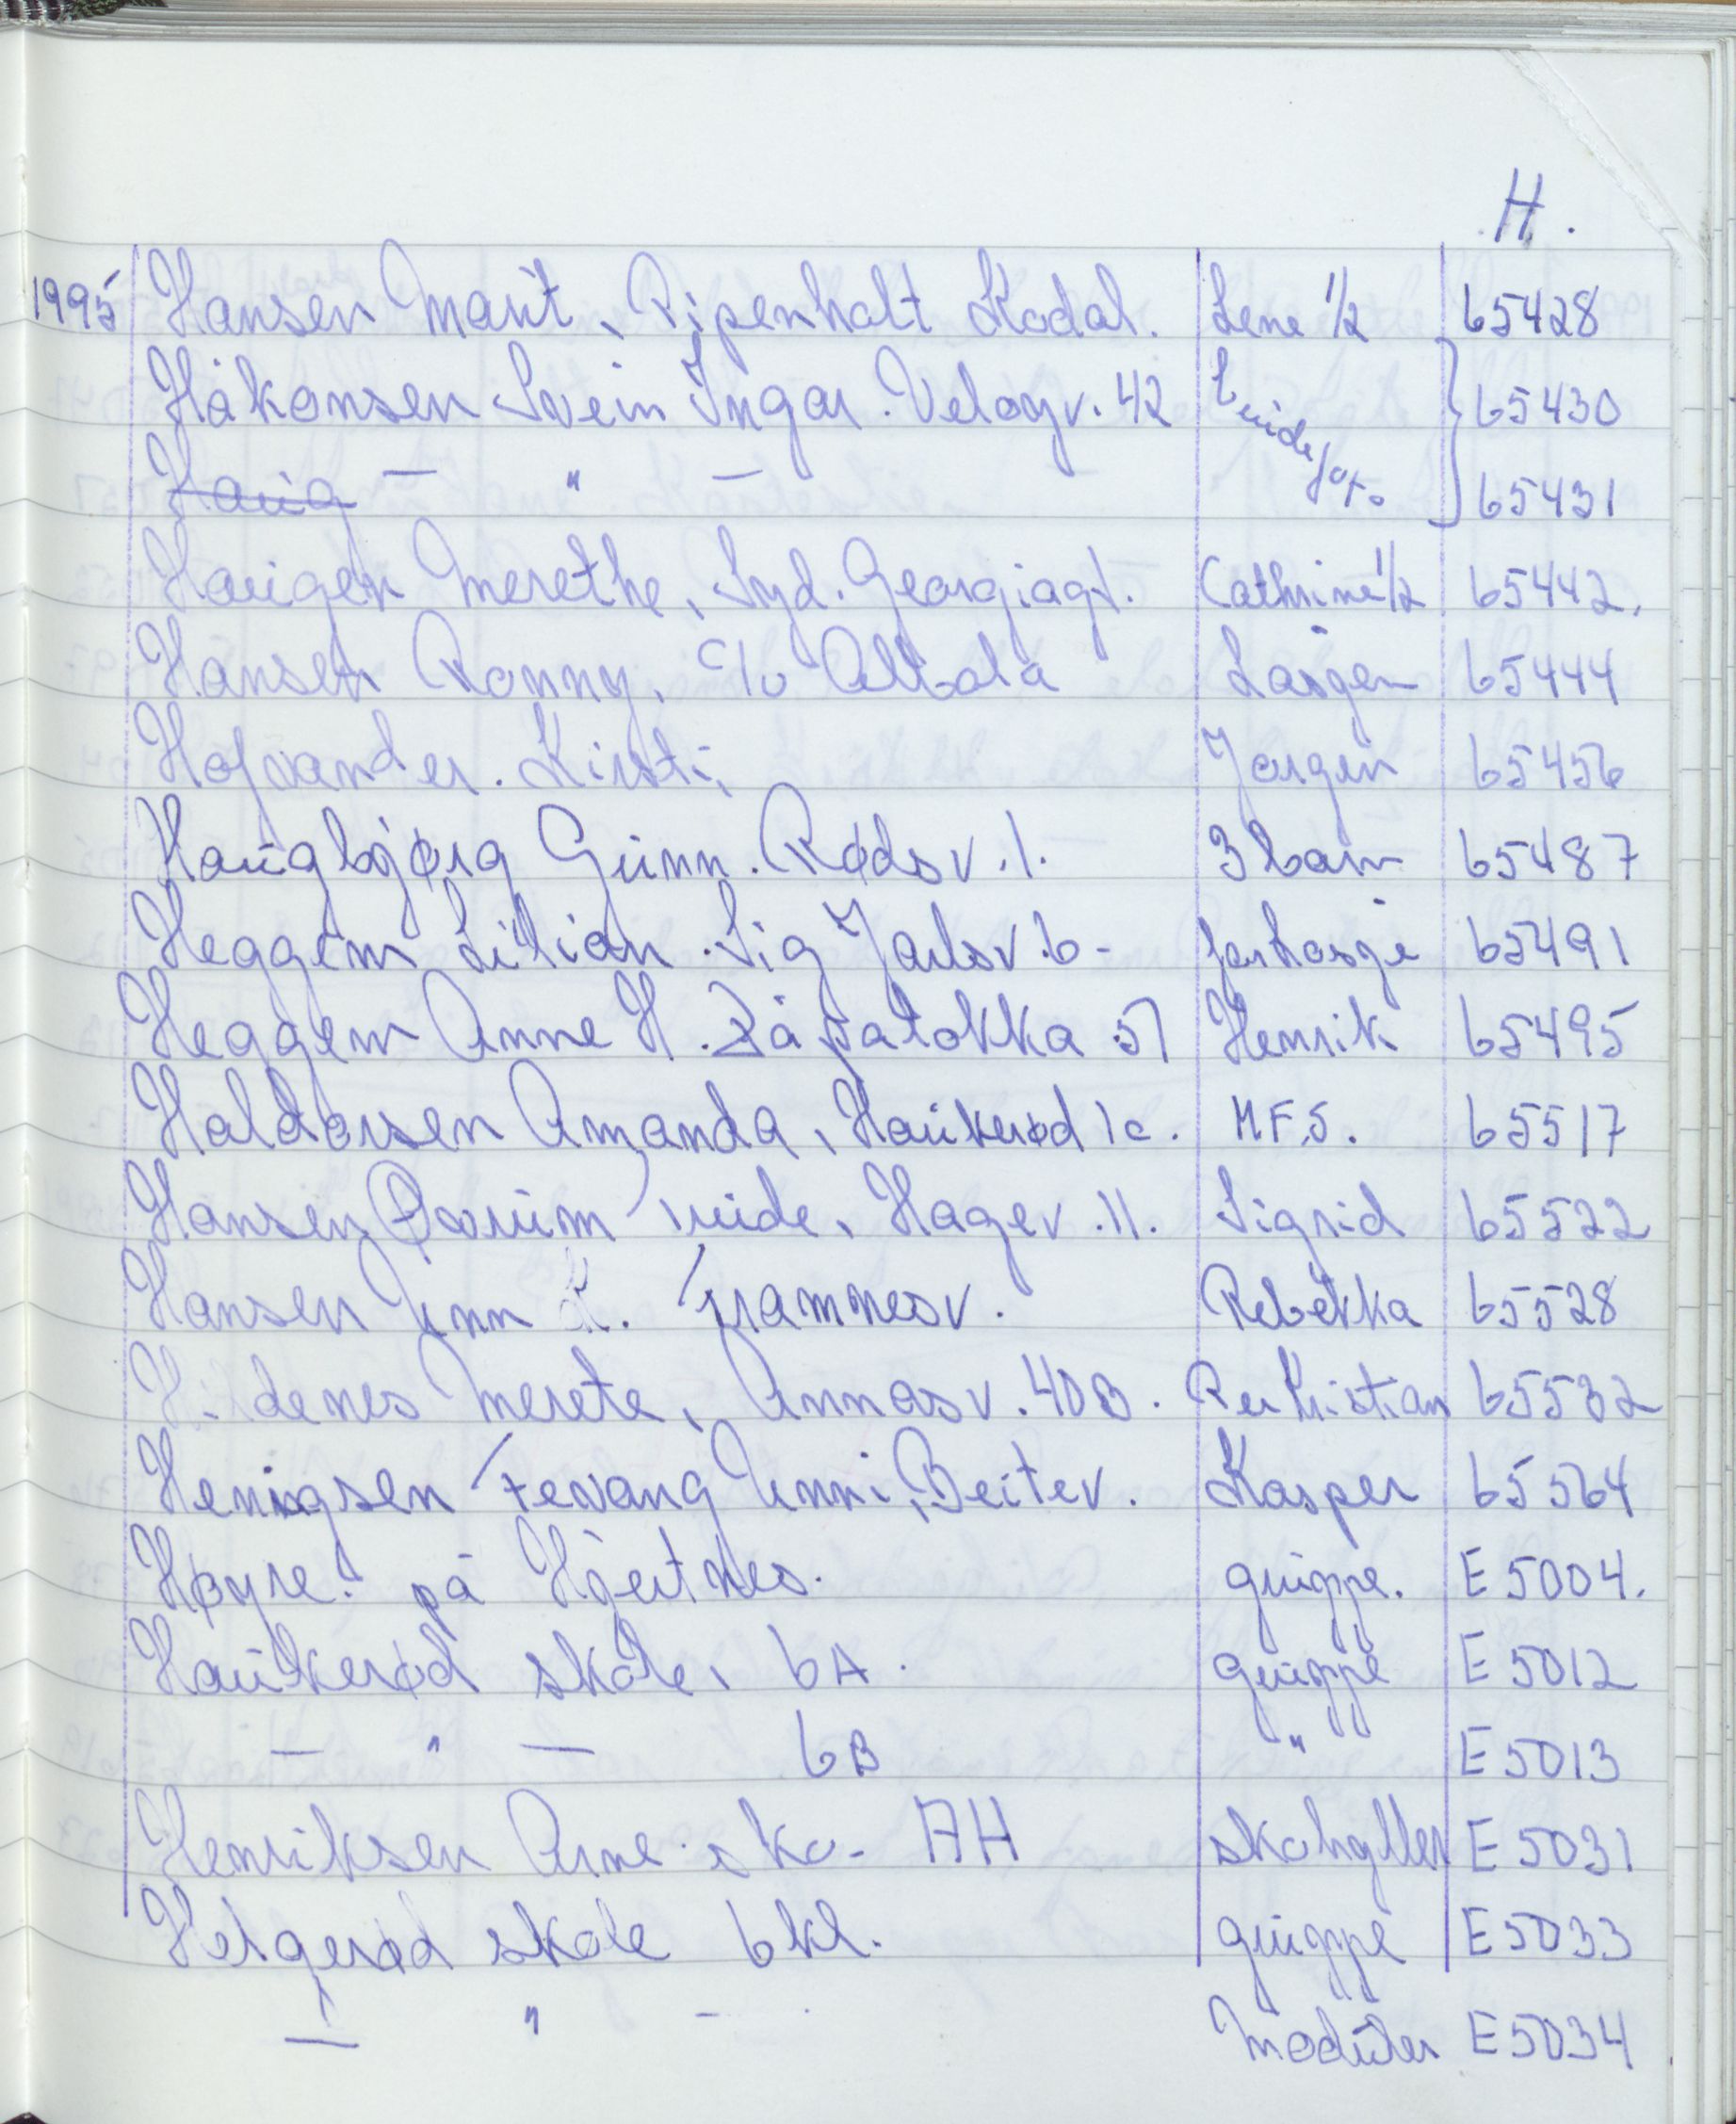 H.
1995 Hansen Marit, Ripenholt Kodal. Lene 1/2 65428
Håkonsen Svein Ingar. Velogv. 42 65430
Haug — " — 65431
Haugen Merethe, Syd. Georgiagt. Cathrine 1/2 65442.
Hansen Ronny, c/o Abbala 65444
Hofvander. Kirsti, Jørgen 65456
Haugbjørg Gunn. Rødsv. 1. 3 barn 65487
Heggem Lilian. Sig Jarlsv. 6 - 65491
Heggem Anne H. Båpaløkka 51 Henrik 65495
Haldorsen Amanda, Haukerød 1c. M.F.S. 65517
Hansen Qvorum Vride, Hagev. 11. Sigrid 65522
Hansen Unn K. Framnesv. Rebekka 65528
Merete, Annasv. 40B. Per Kristian 65532
Henigsen Fevang Unni, Beitev. Kasper 65564
Høyre. på Hjertnes. gruppe. E 5004.
Haukerød skole, 6A. gruppe E 5012
— " — 6B " E 5013
Henriksen Arne sko - AH skohyller E 5031
Helgerød skole 6kl. gruppe E 5033
— " - Moduler E 5034